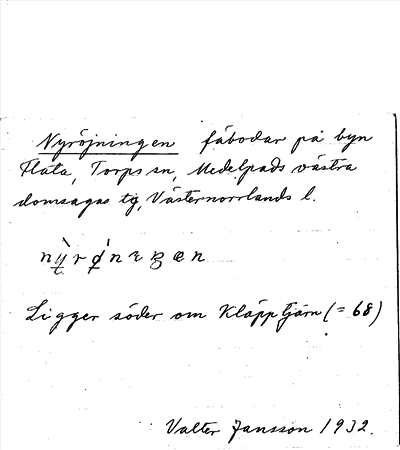 Nyröjningen fäbodar på byn
Flata, Torps sn, Medelpads västra
domsagas tg, Västernorrlands l.
Ligger söder om Kläpptjärn (= 68)
Valter Jansson 1932.